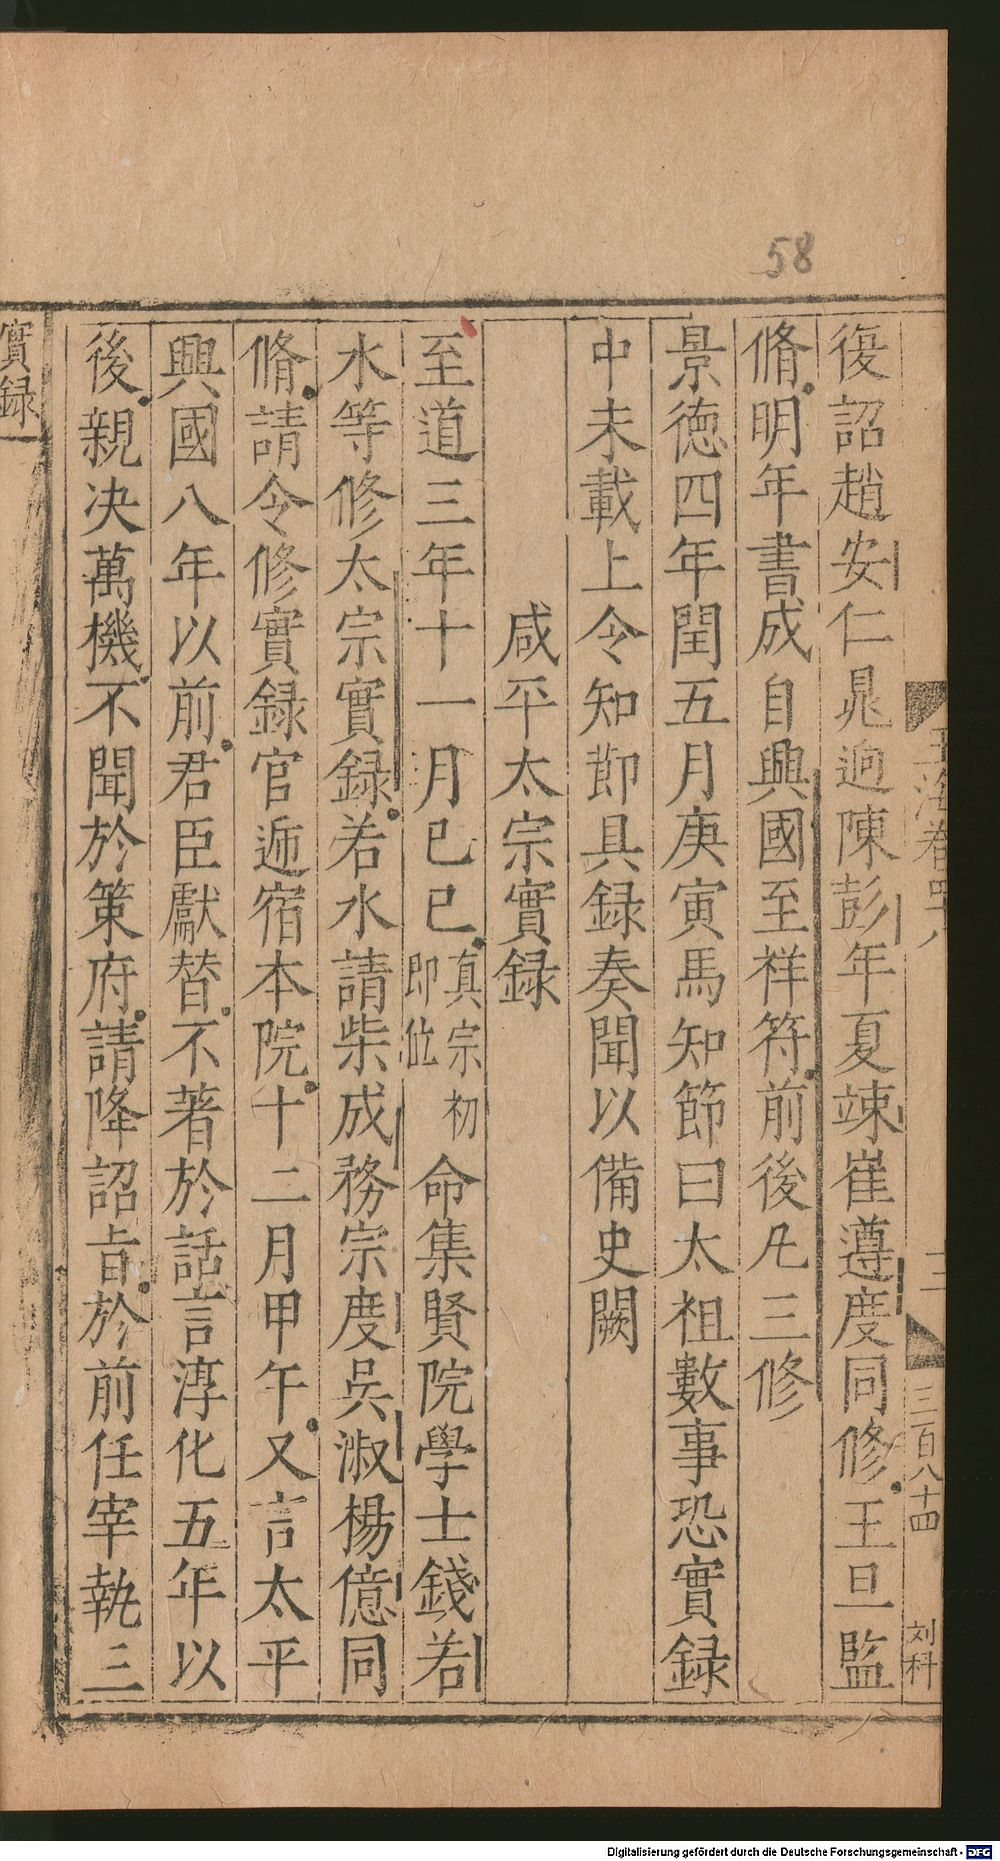 58
玉海卷四十八
三百八十四
刘科
復詔趙安仁晁逈陳彭年夏竦崔遵度同修王旦監
脩明年書成自興國至祥符前後凡三修
景德四年閏五月庚寅馬知節曰太祖數事恐實録
中未載上令知節具録奏聞以備史闕
咸平太宗實録
至道三年十一月已巳真宗初即位命集賢院學士錢若
水等修太宗實録若水請柴成務宗度吳淑楊億同
脩請令修實録官逓宿本院十二月甲午又言太平
興國八年以前君臣獻替不著於話言淳化五年以
後親决萬機不聞於策府請降詔旨於前任宰執三
實録
Digitalisierung gefördert durch die Deutsche Forschungsgemeinschaft - DFG